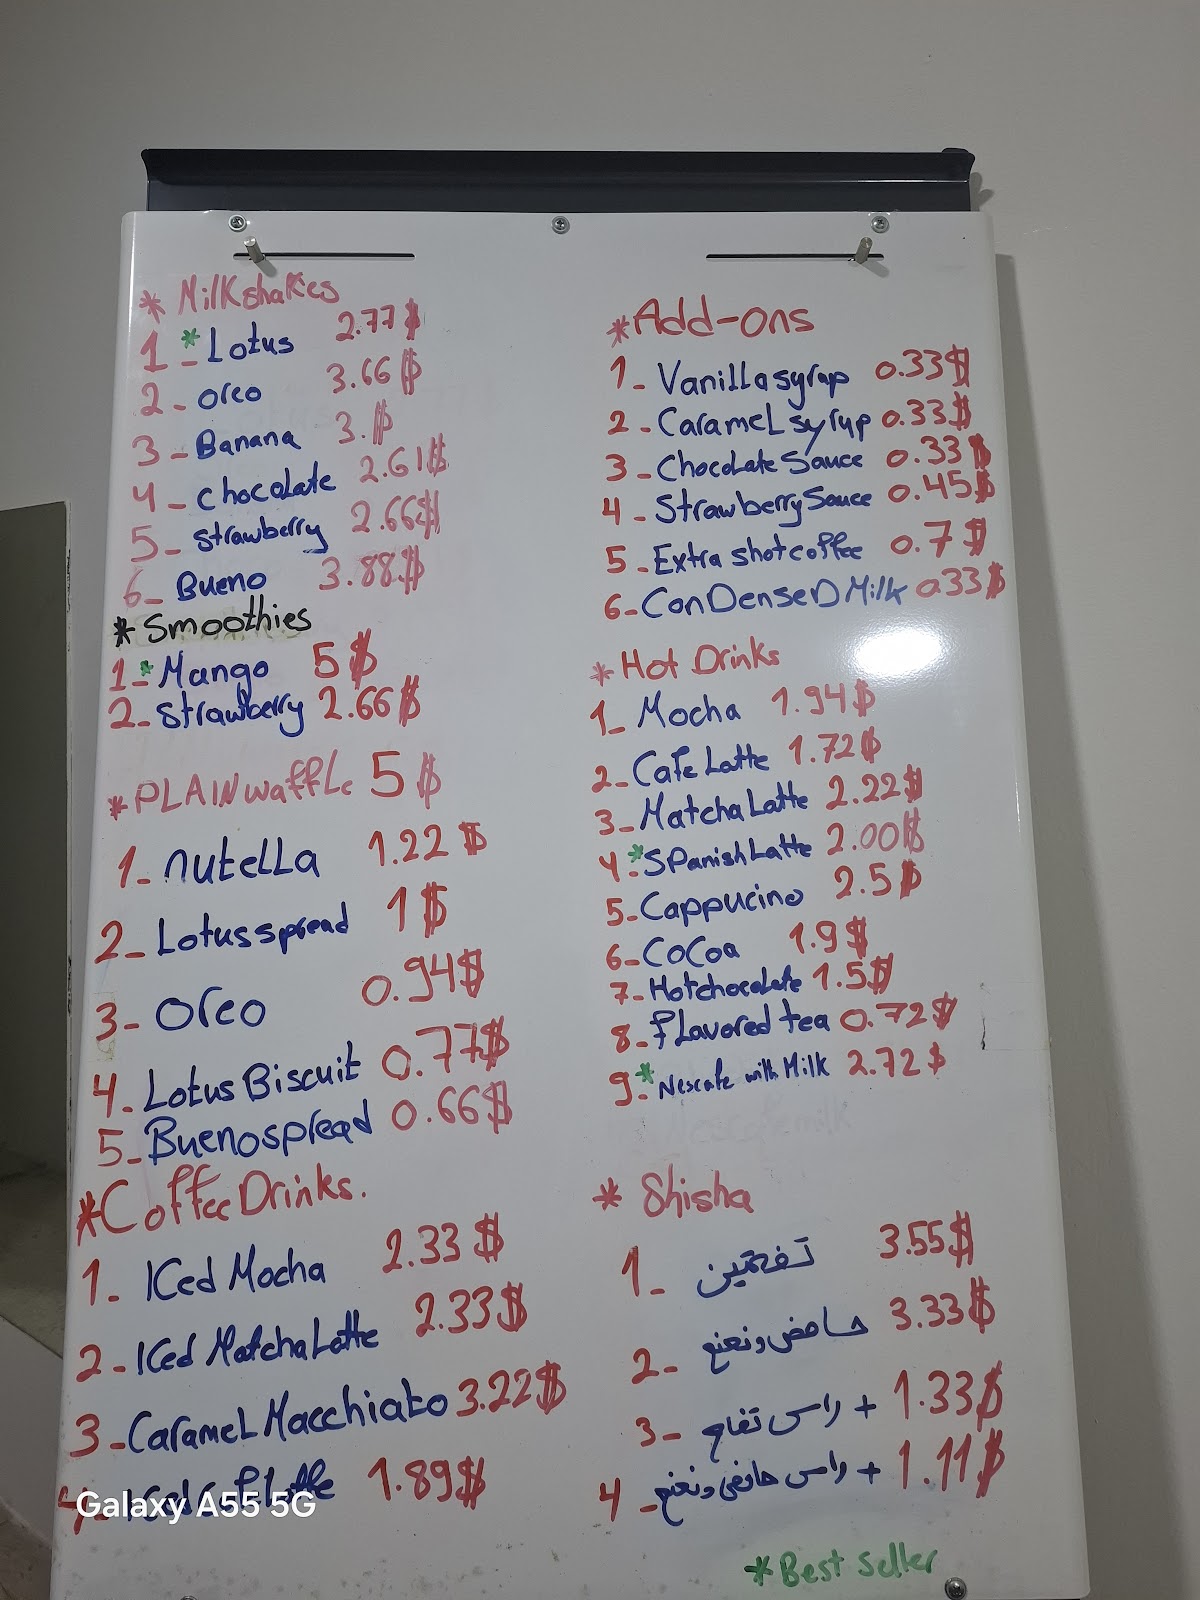 * Milkshakes
1 - * Lotus 2.77$
2 - oreo 3.66$
3 - Banana 3.$
4 - chocolate 2.61$
5 - strawberry 2.66$
6 - Bueno 3.88$
* Smoothies
1 - * Mango 5$
2 - strawberry 2.66$
* PLAIN waffle 5$
1 - nutella 1.22$
2 - Lotus spread 1$
3 - oreo 0.94$
4 - Lotus Biscuit 0.77$
5 - Bueno spread 0.66$
* Coffee Drinks.
1 - Iced Mocha 2.33$
2 - Iced Matcha Latte 2.33$
3 - Caramel Macchiato 3.22$
4 - Iced Latte 1.89$
Galaxy A55 5G
* Add-ons
1 - Vanilla syrup 0.33$
2 - Caramel syrup 0.33$
3 - Chocolate Sauce 0.33$
4 - Strawberry Sauce 0.45$
5 - Extra shot coffee 0.7$
6 - ConDenseD Milk 0.33$
* Hot Drinks
1 - Mocha 1.94$
2 - Cafe Latte 1.72$
3 - Matcha Latte 2.22$
4 - * Spanish Latte 2.00$
5 - Cappucino 2.5$
6 - CoCoa 1.9$
7 - Hot chocolate 1.5$
8 - flavored tea 0.72$
9 - * Nescafe with Milk 2.72$
* Shisha
1 - تفحتين 3.55$
2 - حامض ونعنع 3.33$
3 - راس تفاح + 1.33$
4 - راس حامض ونعنع + 1.11$
* Best seller